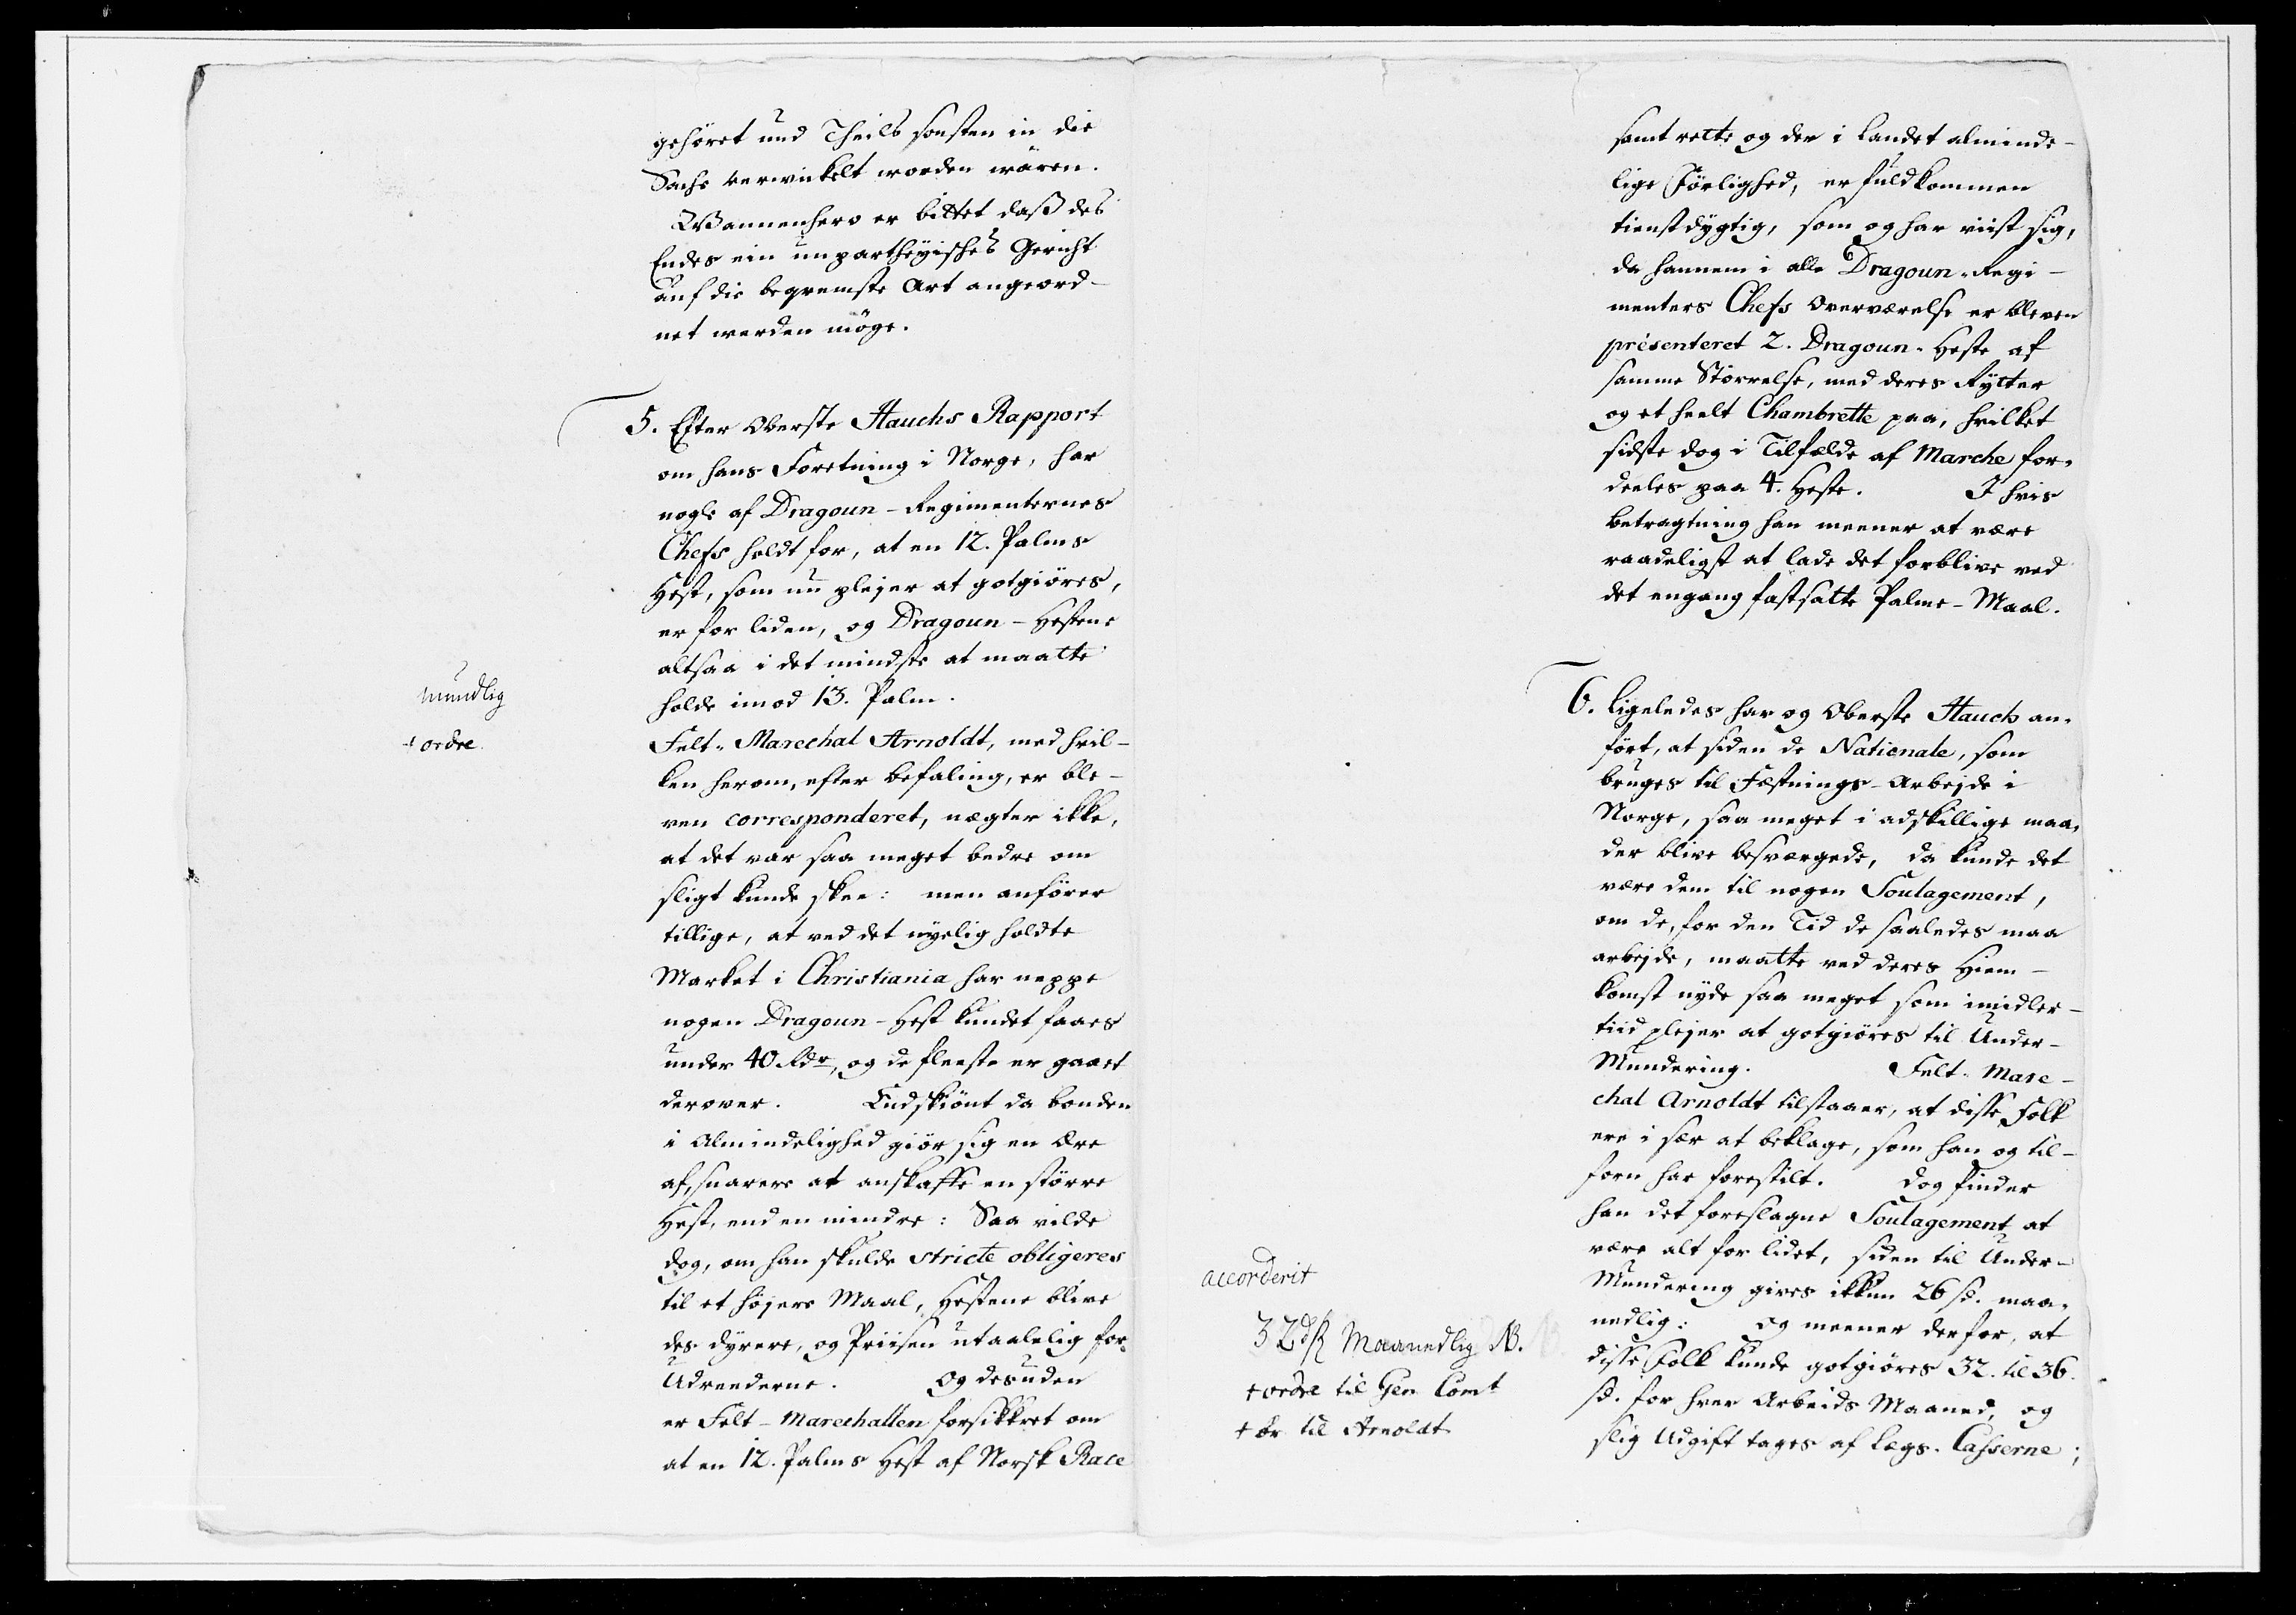 gehöret und Theils sonsten in die
Sache verwickelt worden wären.
Wannenhero er bittet daß des
Endes ein unpartheyisches Gericht
auf die beqvemste Art angeord-
net werden möge.
5. Efter Oberste Hauchs Rapport
om hans Forretning i Norge, har
nogle af Dragoun-Regimenternes
Chefs holdt for, at en 12. Palms
Hest, som nu plejer at gotgiöres,
er for liden, og Dragoun-Hestene
altsaa i det mindste at maatte
holde imod 13. Palm.
mundlig
+ ordre.
Felt-Marechal Arnoldt, med hvil-
ken herom, efter befaling, er ble-
ven corresponderet, nægter ikke,
at det var saa meget bedre om
sligt kunde skee: men anförer
tillige, at ved det nyelig holdte
Market i Christiania har neppe
nogen Dragoun-Hest kundet faaes
under 40 Rdr, og de fleeste er gaaet
derover. Endskiönt da bonden
i Almindelighed giör sig en Ære
af, snarere at anskaffe en större
Hest, end en mindre: Saa vilde
dog, om han skulde stricte obligeres
til et höjere Maal, Hestene blive
des dyrere, og Priisen utaalelig for
Udreederne. Og desuden
er Felt-Marechallen forsikkret om
at en 12. Palms Hest af Norsk Race
samt rette og der i Landet alminde-
lige Förlighed, er fuldkommen
tienstdygtig, som og har viist sig,
da hannem i alle Dragoun-Regi-
menters Chefs Overværelse er bleven
præsenteret 2. Dragoun-Heste af
samme Störrelse, med deres Rytter
og et heelt Chambrette paa, hvilket
sidste dog i Tilfælde af Marche for-
deeles paa 4. Heste. I hvis
betragtning han meener at være
raadeligst at lade det forblive ved
det engang fastsatte Palme-Maal.
6. Ligeledes har og Oberste Hauch an-
fört, at siden de Nationale, som
bruges til Fæstnings-Arbejde i
Norge, saa meget i adskillige maa-
der blive besværgede, da kunde det
være dem til nogen Soulagement,
om de, for den Tid de saaledes maa
arbejde, maatte ved deres Hiem-
komst nyde saa meget som imidler-
tiid plejer at gotgiöres til Under-
Mundering. Felt-Mare-
chal Arnoldt tilstaaer, at disse Folk
ere i sær at beklage, som han og til-
forn har forestilt. Dog finder
han det foreslagne Soulagement at
være alt for lidet, siden til Under-
Mundering gives ikkun 26 ß. maa-
nedlig: Og meener derfor, at
disse Folk kunde gotgiöres 32. til 36.
ß. for hver Arbeids Maaned, og
slig Udgift tages af Lægs-Casserne;
accorderit
32 dß Maanedlig NB.
+ ordre til Gen Comt
+ Or til Arnoldt